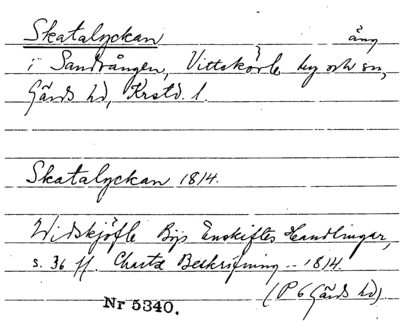 Skatalyckan äng
i Sandvången, Vittskövle by och sn,
Gärds hd, Krstd. l.
Skatalyckan 1814.
Widskjöfle Bys Enskiftes Handlingar,
s. 36 ff. Charta Beskrifning -- 1814.
(P 6 Gärds hd)
Nr 5340.